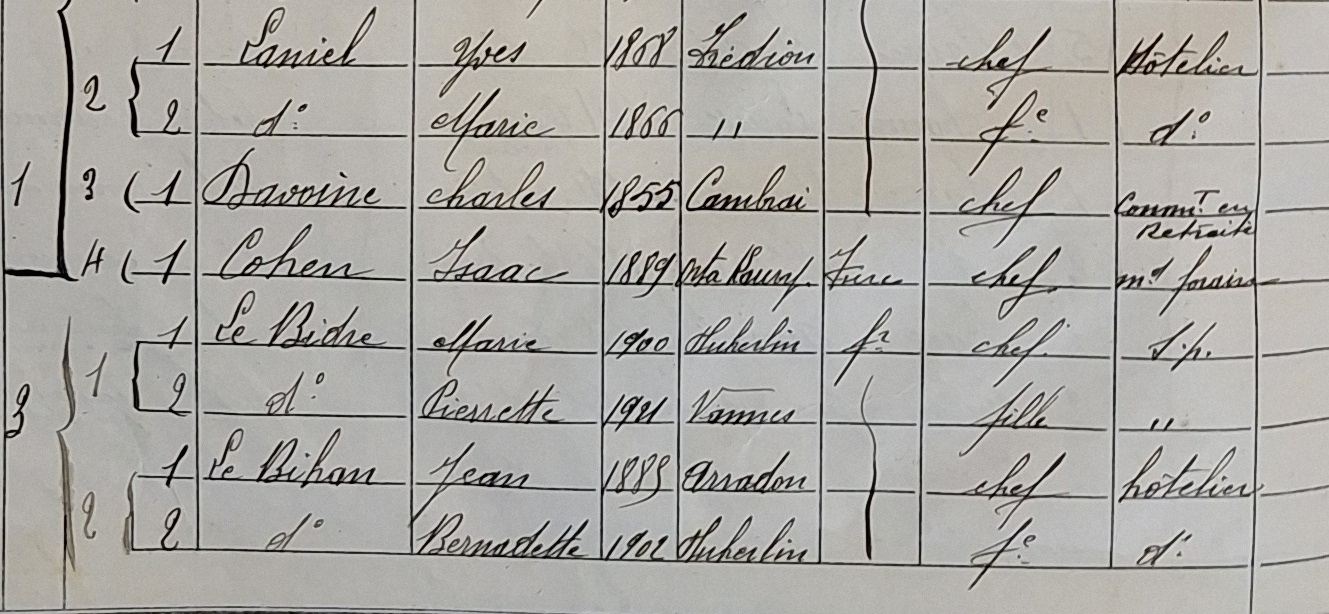 2 1 Laniel Yves 1868 Trédion chef Hôtelier
2 d° Marie 1866 " fe d°
1 3 1 Davoine charles 1855 Cambrai chef Commt en Retraite
4 1 Cohen Isaac 1889 Turc chef md forain
3 1 1 Le Bidre Marie 1900 fse chef S.p.
2 d° Pierrette 1921 Vannes fille "
2 1 Le Bihan Jean 1889 Arradon chef hôtelier
2 d° Bernadette 1902 fe d°